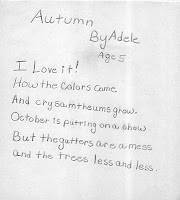 Autumn
By Adele
Age 5
I Love it!
How the Colors came
And crysamtheums grow.
October is putting on a show
But the gutters are a mess
and the trees less and less.